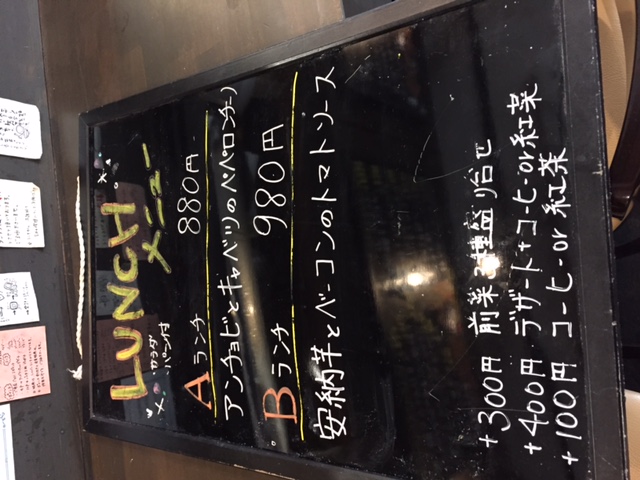 LUNCH
メニュー
サラダ
パン付
Aランチ 880円
アンチョビとキャベツのペペロンチーノ
Bランチ 980円
安納芋とベーコンのトマトソース
+300円 前菜3種盛り合せ
+400円 デザート+コーヒーor紅茶
+100円 コーヒーor紅茶